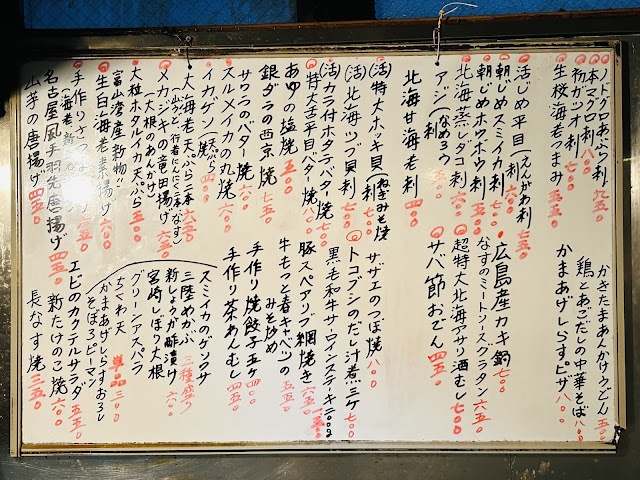 ノドグロあぶり刺 九五〇
本マグロ刺 八〇〇
初ガツオ刺 七〇〇
生桜海老つまみ 五五〇
活じめ平目刺(えんがわ刺) 七五〇
朝じめスミイカ刺
朝じめホウボウ刺 七〇〇
北海蒸しダコ刺 五五〇
アジ(刺 なめろう) 六五〇
北海甘海老刺 四〇〇
(活)特大ホッキ貝(刺 ねぎみそ焼)
(活)北海ツブ貝刺 七〇〇
(活)カラ付ホタテバター焼
特大苫平貝バター焼 八〇〇
あゆの塩焼 五〇〇
銀ダラの西京焼 七五〇
サワラのバター焼 六〇〇
スルメイカの丸焼 六〇〇
イカゲソ(天ぷら 焼) 四〇〇
大海老天ぷら二本 六五〇
(出うど、行者にんにく二本、なす)
メカジキの竜田揚げ 六五〇
(大根のあんかけ)
大粒ホタルイカ天ぷら 五〇〇
富山湾産新物!!
生白海老素揚げ 六〇〇
手作りさつま
(海老、新
名古屋風手羽先唐揚げ 四五〇
山芋の唐揚げ 四五〇
かきたまあんかけうどん 五〇〇
鶏とあごだしの中華そば 八〇〇
かまあげしらすピザ 八〇〇
広島産カキ 七〇〇
なすのミートソースグラタン 六五〇
超特大北海アサリ酒むし 七〇〇
サバ節おでん
サザエのつぼ焼 八〇〇
トコブシのだし汁煮三ケ 七〇〇
黒毛和牛サーロインステーキ 二〇〇〇
豚スペアリブ網焼き 六五〇
牛もっと春キャベツの
みそ炒め 五五〇
手作り焼餃子五ケ 四五〇
手作り茶わんむし 四五〇
スミイカのゲソワサ
三陸めかぶ
新しょうが酢漬け 三種盛り
宮崎しぼり大根 六〇〇
グリーンアスパラ
ちくわ天 単品 三〇〇
かまあげしらすおろし
そぼろピーマン
エビのカクテルサラダ 五五〇
新たけのこ焼 六〇〇
長なす焼 三五〇